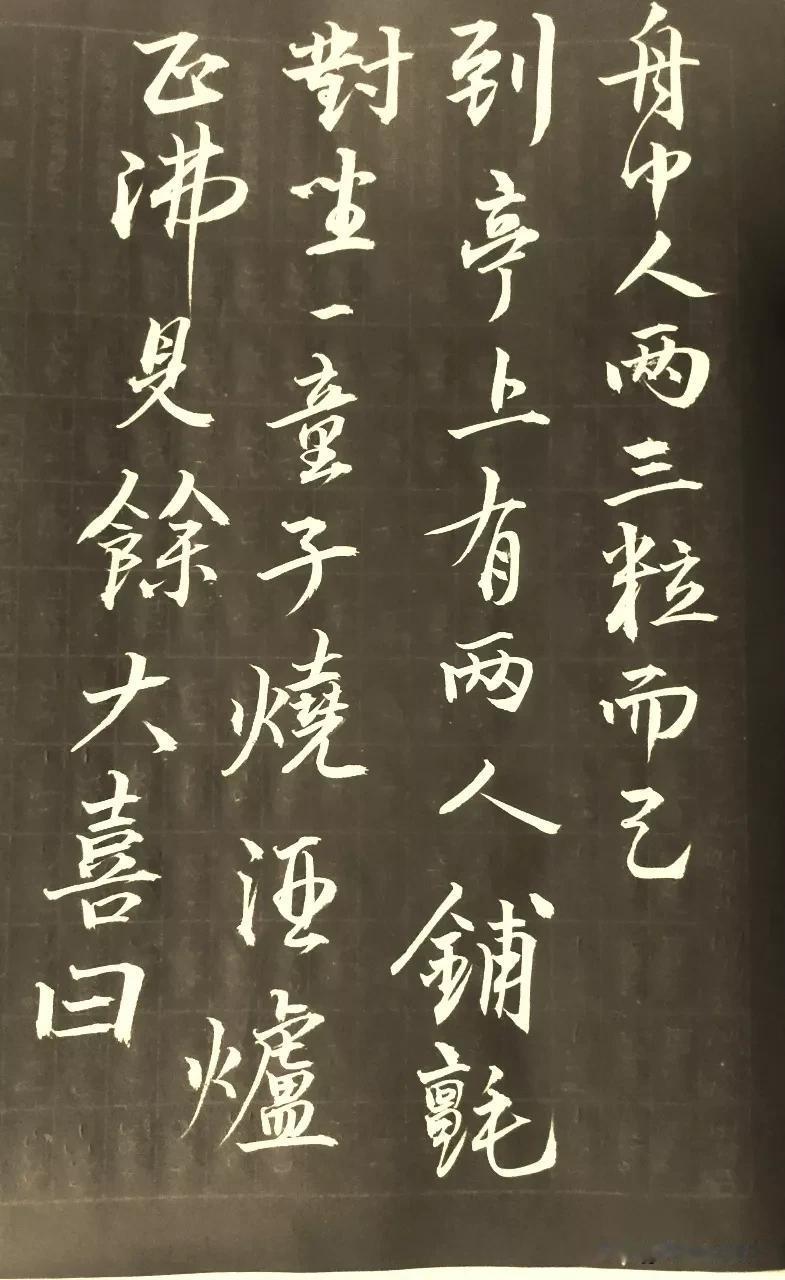 舟中人两三粒而己
到亭上有两人鋪氈
對坐一童子燒酒爐
正沸見餘大喜曰